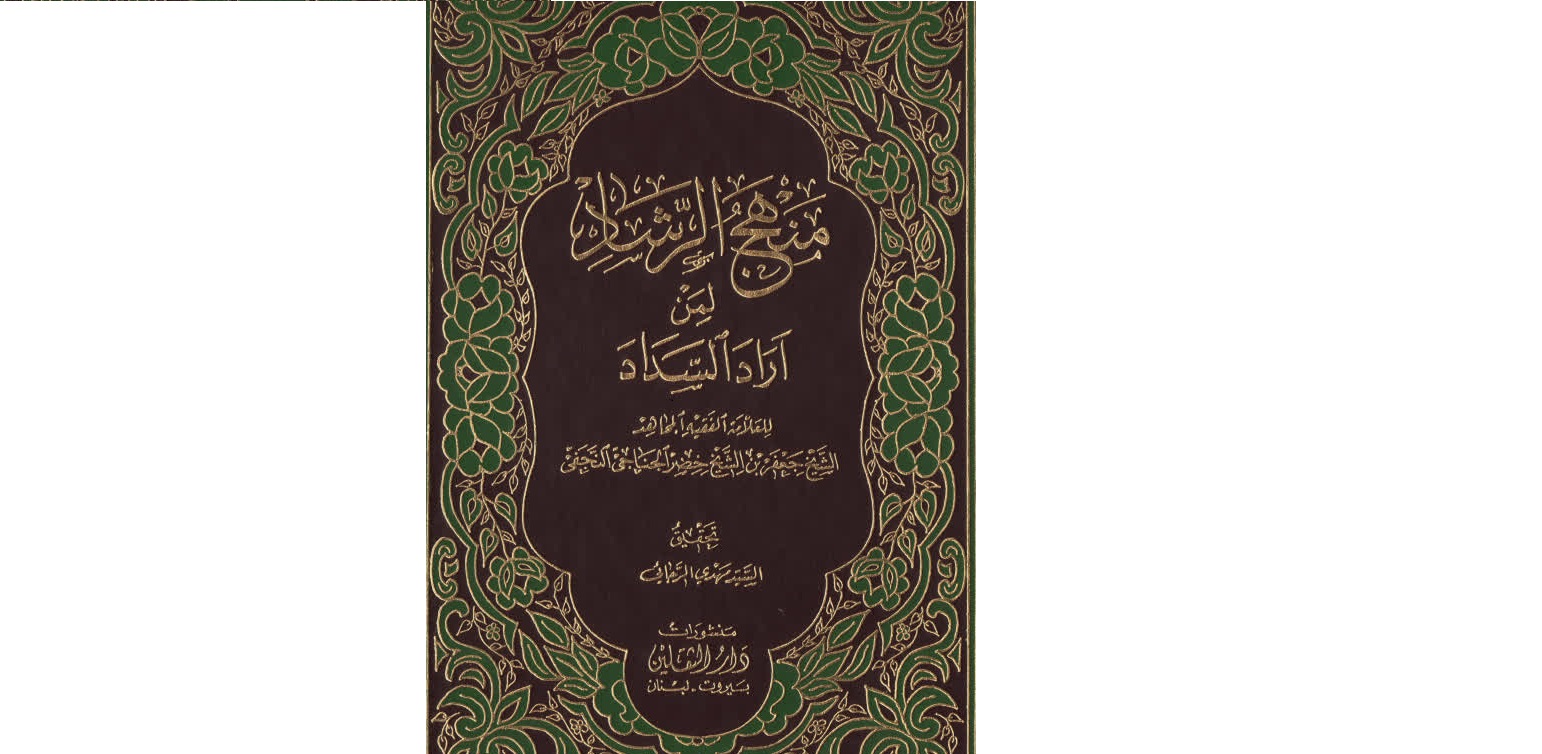 مَنْهَجُ الرَّشَادِ
لِمَنْ
اَرَادَ ٱلسَّدَادَ
لِلعَلاَّمَة ٱلفَقِيهِ ٱلمُجَاهِدْ
الشَّيْخ جَعْفَر بْن الشَّيْخ خِضِر ٱلجَنَاجِيّ ٱلنَّجَفِيّ
تَحْقِيْقُ
السَّيِّد مَهْدِي الرَّجَائي
مَنشورَات
دَارُ الثَّقَلَيْن
بَيروت - لبْنان